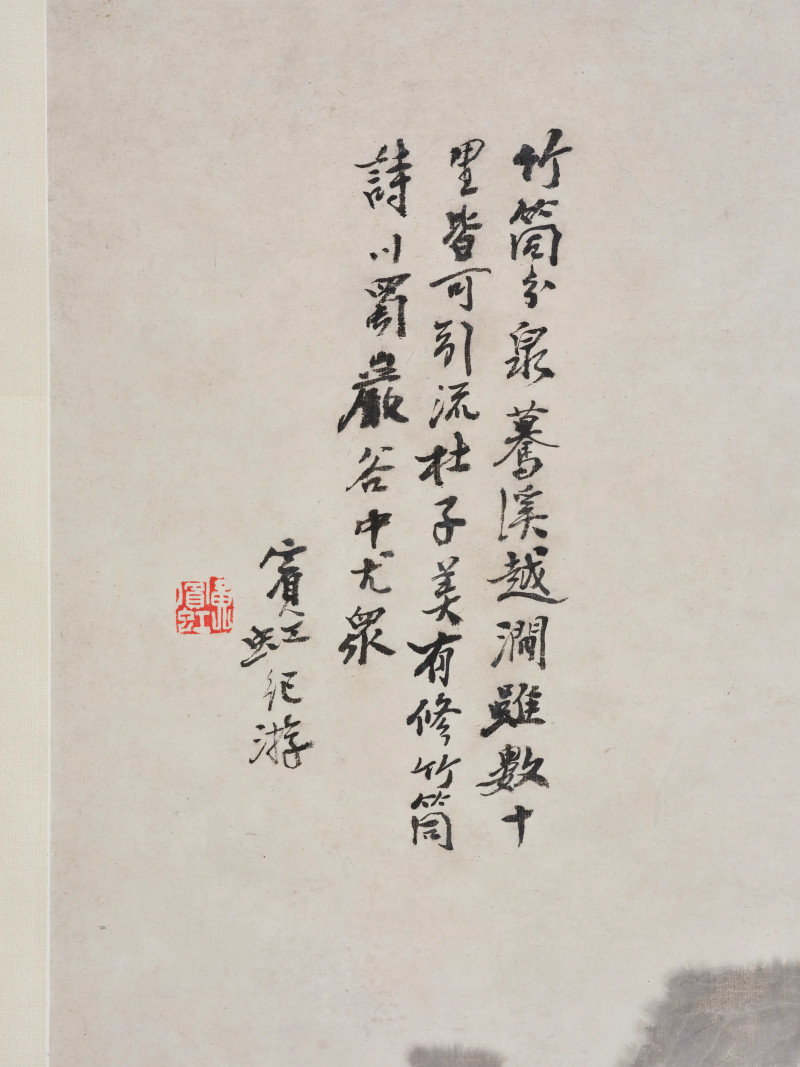 竹筒分泉驀溪越澗雖數十
里皆可引流杜子美有修竹筒
詩川蜀巖谷中尤眾
賓虹紀游
黃賓虹